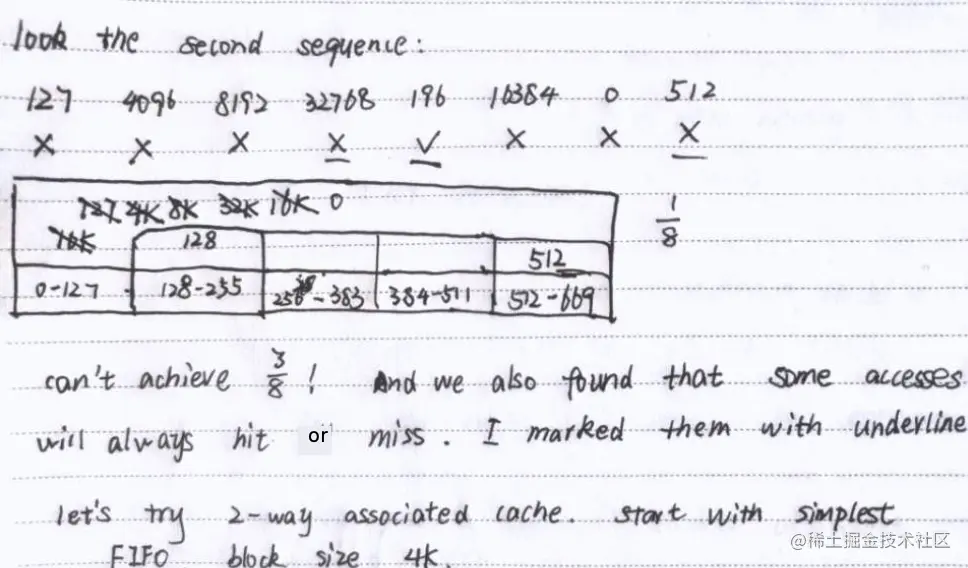 look the second sequence:
127 4096 8192 32768 196 16384 0 512
X X X X √ X X X
127 4K 8K 32K 16K 0
1/8
16K 128 512
0-127 128-255 256-383 384-511 512-669
can't achieve 3/8! And we also found that some accesses
will always hit or miss. I marked them with underline
let's try 2-way associated cache. start with simplest
FIFO block size 4K.
@稀土掘金技术社区